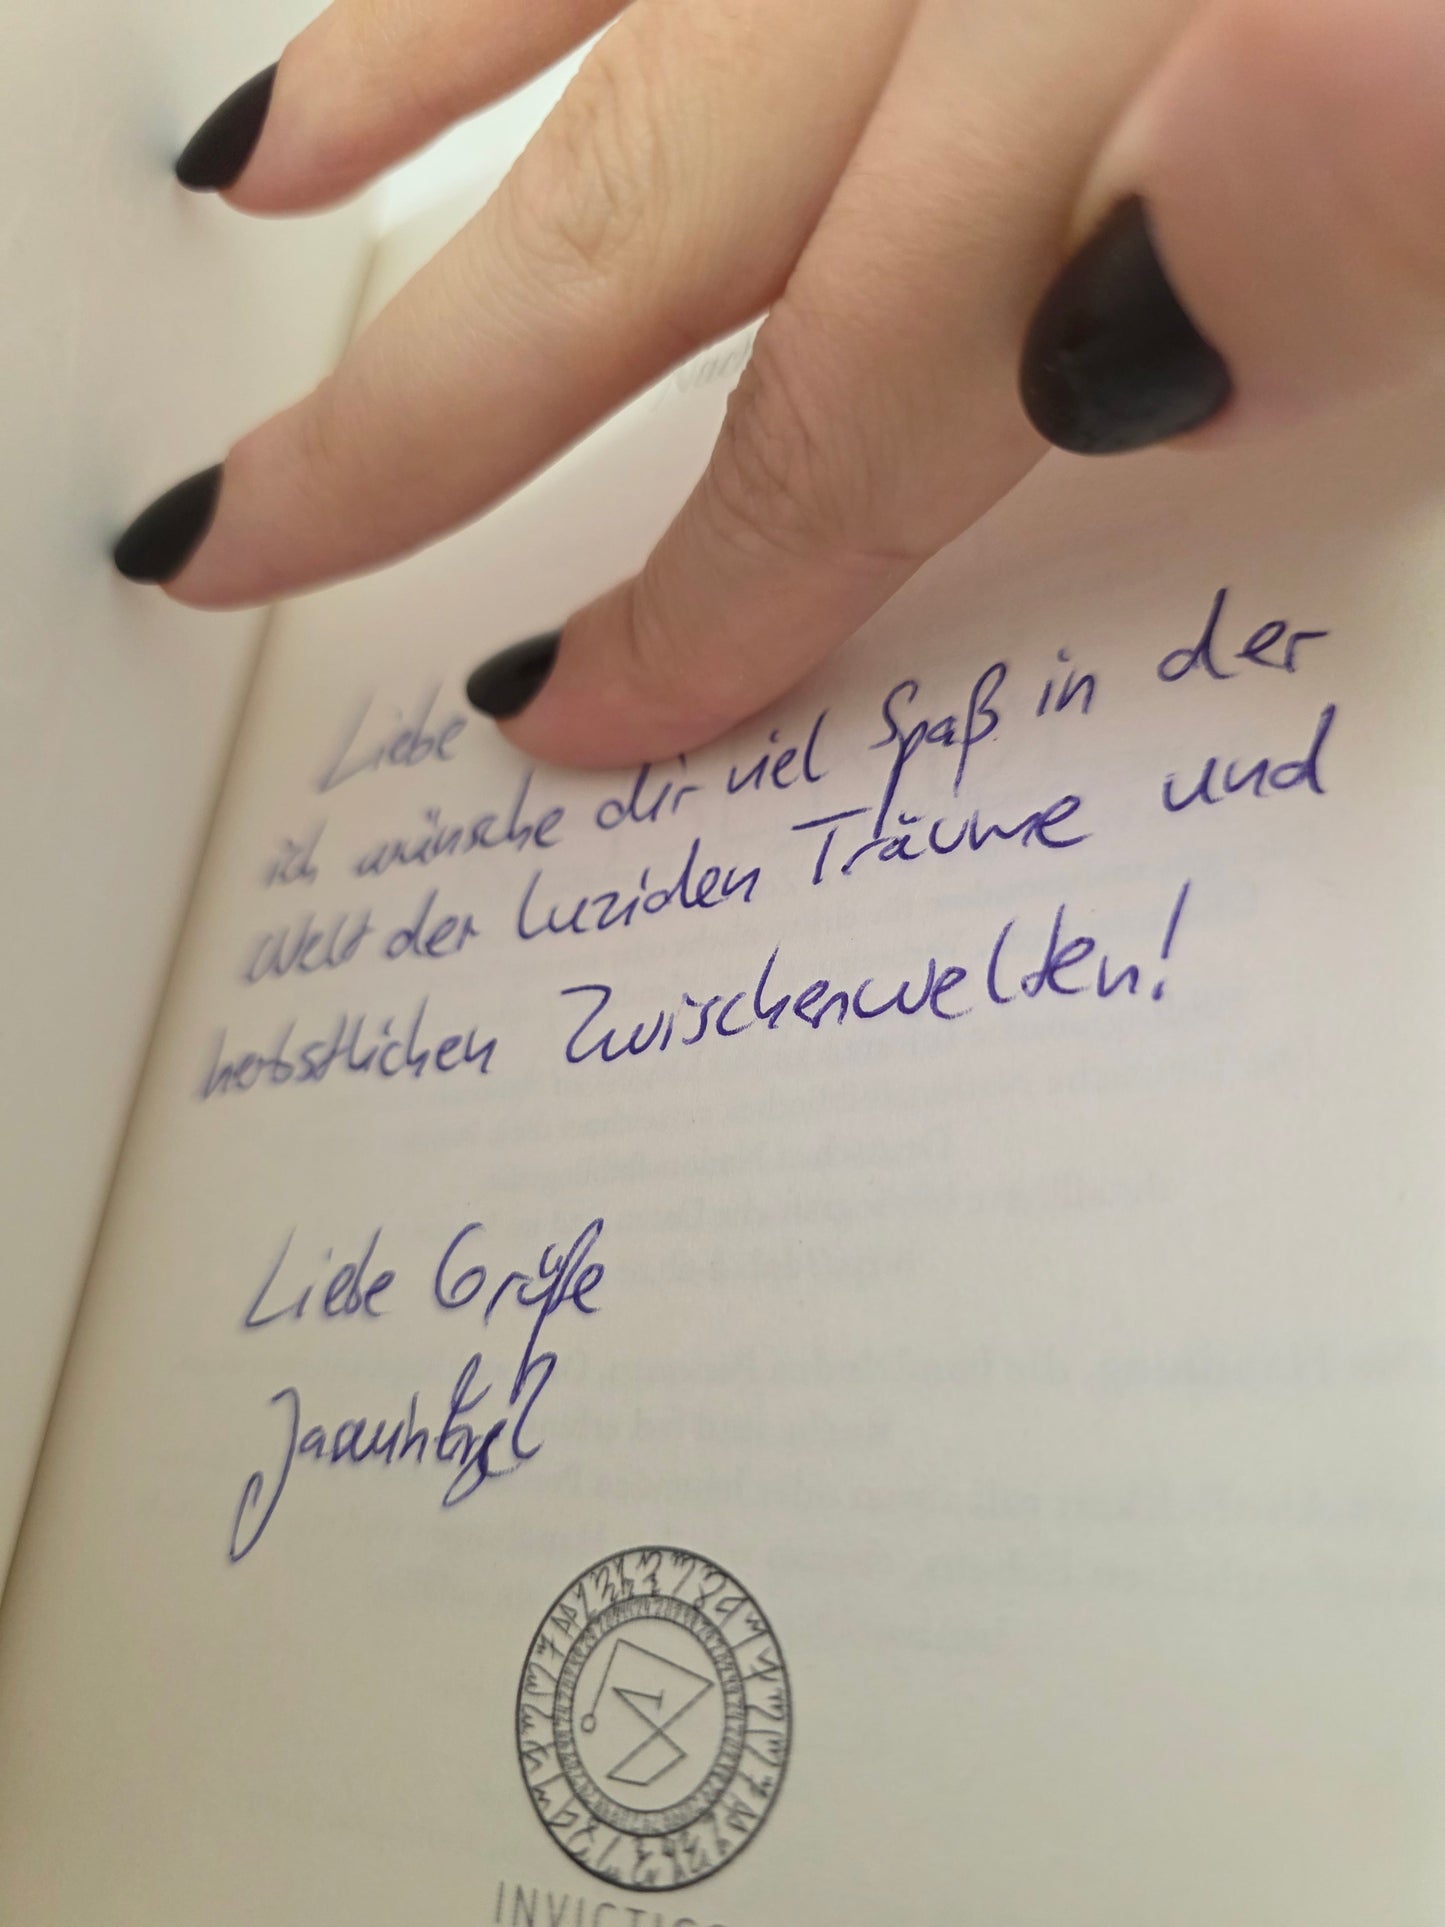 Liebe
ich wünsche dir viel Spaß in der
Welt der luziden Träume und
herbstlichen Zwischenwelten!
Liebe Grüße
Jasmin